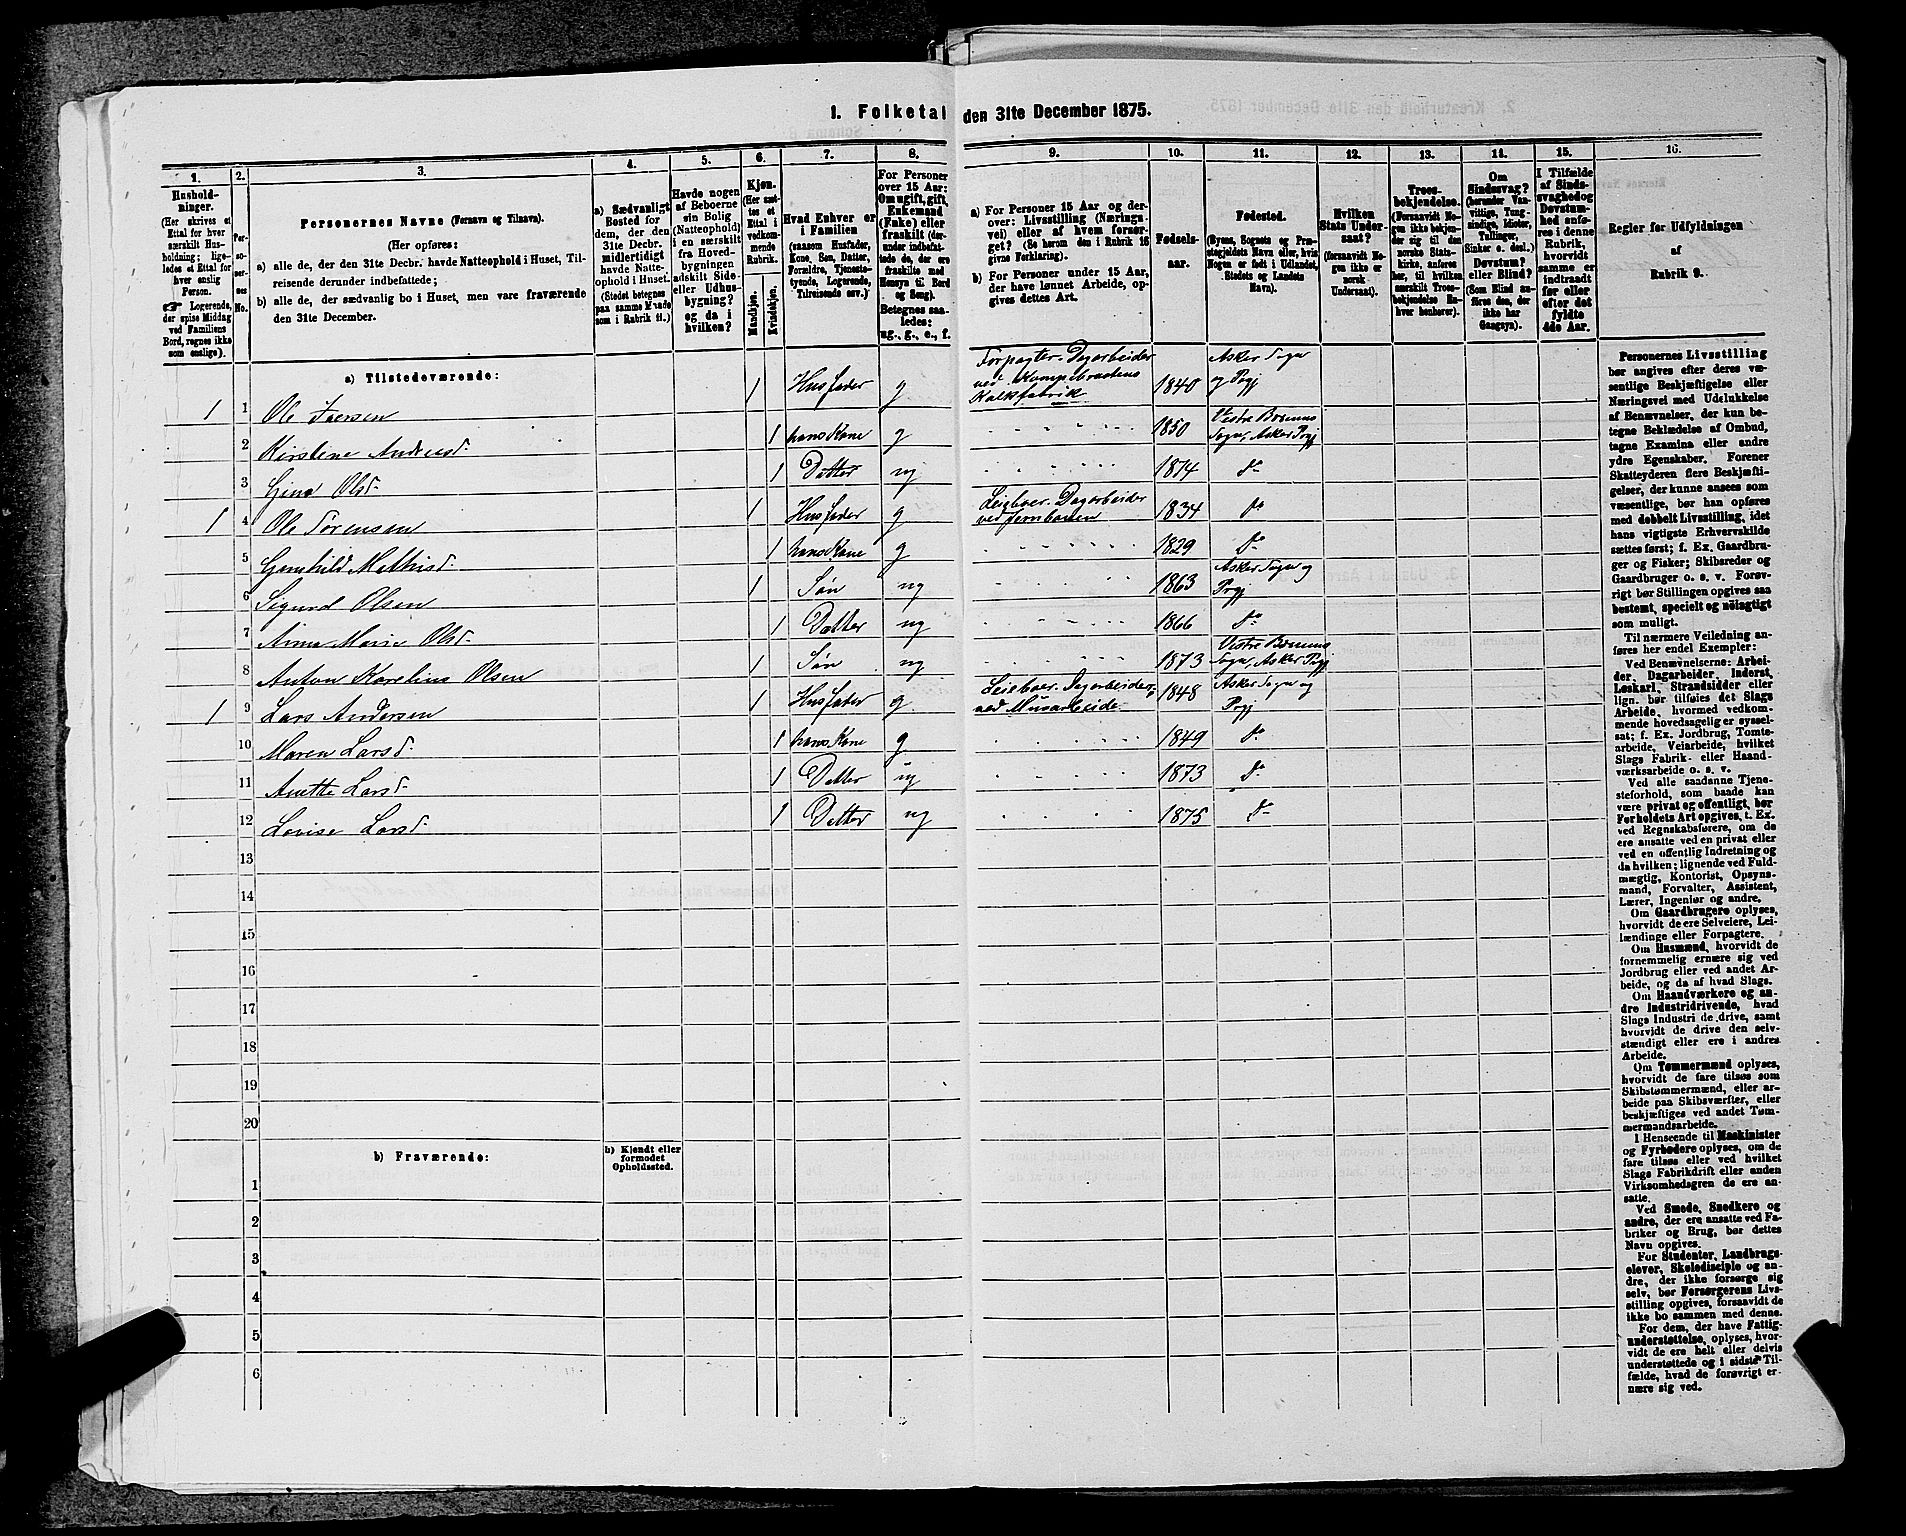 1. Folketal den 31te December 1875.
1. 2. 3. 4. 5. 6. 7. 8. 9. 10. 11. 12. 13. 14. 15. 16.
Husholdninger.
(Her skrives et
Ettal for hver
særskilt Husholdning; ligeledes
et Ettal for
hver enslig
Person.
Logerende,
der spise Middag
ved Familiens
Bord, regnes ikke
som enslige).
Personernes No.
Personernes Navne (Fornavn og Tilnavn).
(Her opføres:
a) alle de, der den 31te Decbr. havde Natteophold i Huset, Tilreisende derunder indbefattede;
b) alle de, der sædvanlig bo i Huset, men vare fraværende
den 31te December.
a) Sædvanligt
Bosted for
dem, der den
31te Decbr.
midlertidigt
havde Natteophold
i Huset.
(Stedet betegnes
paa samme Maade
som i Rubrik 11.)
Havde nogen
af Beboerne
sin Bolig
(Natteophold)
i en særskilt
fra Hovedbygningen
adskilt Side-
eller Udhusbygning?
og da i
hvilken?
Kjøn.
(Her sættes
et
Ettal i
vedkommende
Rubrik.
Mandkjøn.
Kvindekjøn.
Hvad Enhver er
i Familien
(saasom Husfader,
Kone, Søn, Datter,
Forældre, Tjenestetyende,
Logerende,
Tilreisende osv.)
For Personer
over 15 Aar:
Om ugift, gift,
Enkemand
(Enke) eller
fraskilt (derunder
indbefattede
de, der ere
fraskilte med
Hensyn til Bord
og Seng).
Betegnes saaledes:
ug., g., e., f.
a) For Personer 15 Aar og derover:
Livsstilling (Næringsvei)
eller af hvem forsørget?
(Se herom den i Rubrik 16
givne Forklaring).
b) For Personer under 15 Aar,
der have lønnet Arbeide, opgives
dettes Art.
Fødselsaar.
Fødested.
(Byens, Sognets og Præstegjeldets
Navn eller, hvis
Nogen er født i Udlandet,
Stedets og Landets
Navn).
Hvilken
Stats Undersaat?
(forsaavidt Nogen
ikke er
norsk
Undersaat).
Troesbekjendelse.
(Forsaavidt Nogen
ikke bekjender
sig til den
norske Statskirke,
anføres
her, til hvilken
særskilt Troesbekjendelse
Enhver
henhører).
Om
Sindssvag?
(herunder Vanvittige,
Tungsindige,
Idioter,
Tullinger,
Sinker o. desl.)
Døvstum?
eller Blind?
(Som Blind anføres
den, der
ikke har
Gangsyn).
I Tilfælde
af Sindssvaghed
og
Døvstumhed
anføres
i denne
Rubrik,
hvorvidt
samme er
indtraadt
før eller
efter det
fyldte
4de Aar.
Regler for Udfyldningen
af
Rubrik 9.
a) Tilstedeværende:
1 1 Ole Iversen 1 Husfader g Forpagter. Dagarbeider ved Kampebraatens Kalkfabrik 1840 Asker Sogn og Prgj
2 Kirstine Andreasd. 1 hans Kone g 1850 Vestre Bærums Sogn, Asker Prgj
3 Gina Olsd. 1 Datter ug 1874 do
1 4 Ole Sørensen 1 Husfader g Leieboer. Dagarbeider ved Jernbanen 1834 do
5 Gunhild Mathisd. 1 hans Kone g 1829 do
6 Sigurd Olsen 1 Søn ug 1863 Asker Sogn og Prgj
7 Anna Marie Olsd. 1 Datter ug 1866 do
8 Anton Karelius Olsen 1 Søn ug 1873 Vestre Bærums Sogn, Asker Prgj
1 9 Lars Andersen 1 Husfader g Leieboer. Dagarbeider ved Murarbeide 1848 Asker Sogn og Prgj
10 Maren Larsd. 1 hans Kone g 1849 do
11 Anette Larsd. 1 Datter ug 1873 do
12 Lovise Larsd. 1 Datter ug 1875 do
13
14
15
16
17
18
19
20
b) Fraværende:
b) Kjendt eller
formodet
Opholdssted.
1
2
3
4
5
6
Personernes Livsstilling
bør angives efter deres væsentlige
Beskjæftigelse eller
Næringsvei med Udelukkelse
af Benævnelser, der kun betegne
Beklædelse af Ombud,
tagne Examina eller andre
ydre Egenskaber. Forener
Skatteyderen flere Beskjæftigelser,
der kunne ansees som
væsentlige, bør han opføres
med dobbelt Livsstilling, idet
hans vigtigste Erhvervskilde
sættes først; f. Ex. Gaardbruger
og Fisker; Skibsreder og
Gaardbruger o. s. v. Forøvrigt
bør Stillingen opgives saa
bestemt, specielt og nöiagtigt
som muligt.
Til nærmere Veiledning anføres
her endel Exempler:
Ved Benævnelserne: Arbeider,
Dagarbeider, Inderst,
Løskarl, Strandsidder eller
lign. bør tilføies det Slags
Arbeide, hvormed vedkommende
hovedsagelig er sysselsat;
f. Ex. Jordbrug, Tomtearbeide,
Veiarbeide, hvilket
Slags Fabrik- eller Haandværksarbeide
o. s. v.
Ved alle saadanne Tjenesteforhold,
som baade kan
være privat og offentligt, bør
Forholdets Art opgives, t. Ex.
ved Regnskabsførere, om de
ere ansatte ved en privat eller
ved en offentlig Indretning og
da hvilken; lignende ved Fuldmægtig,
Kontorist, Opsynsmand,
Forvalter, Assistent,
Lærer, Ingeniør og andre.
Om Gaardbrugere oplyses,
hvorvidt de ere Selveiere, Leilændinge
eller Forpagtere.
Om Husmænd, hvorvidt de
fornemmelig ernære sig ved
Jordbrug eller ved andet Arbeide,
og da af hvad Slags.
Om Haandværkere og andre
Industridrivende, hvad
Slags Industri de drive, samt
hvorvidt de drive den selvstændigt
eller ere i andres
Arbeide.
Om Tømmermænd oplyses,
hvorvidt de fare tilsøs som
Skibstømmermænd, eller arbeide
paa Skibsværfter, eller
beskjæftiges ved andet Tømmermandsarbeide.
I Henseende til Maskinister
og Fyrbødere oplyses, om de
fare tilsøs eller ved hvilket
Slags Fabrikdrift eller anden
Virksomhedsgren de ere ansatte.
Ved Smede, Snedkere og
andre, der ere ansatte ved Fabriker
og Brug, bør dettes
Navn opgives.
For Studenter, Landbrugselever,
Skoledisciple og andre,
der ikke forsørge sig
selv, bør Forsørgerens Livsstilling
opgives, forsaavidt de
ikke bo sammen med denne.
For dem, der have Fattigunderstøttelse,
oplyses, hvorvidt
de ere helt eller delvis
understøttede og i sidste Tilfælde,
hvad de forøvrigt ernære
sig ved.